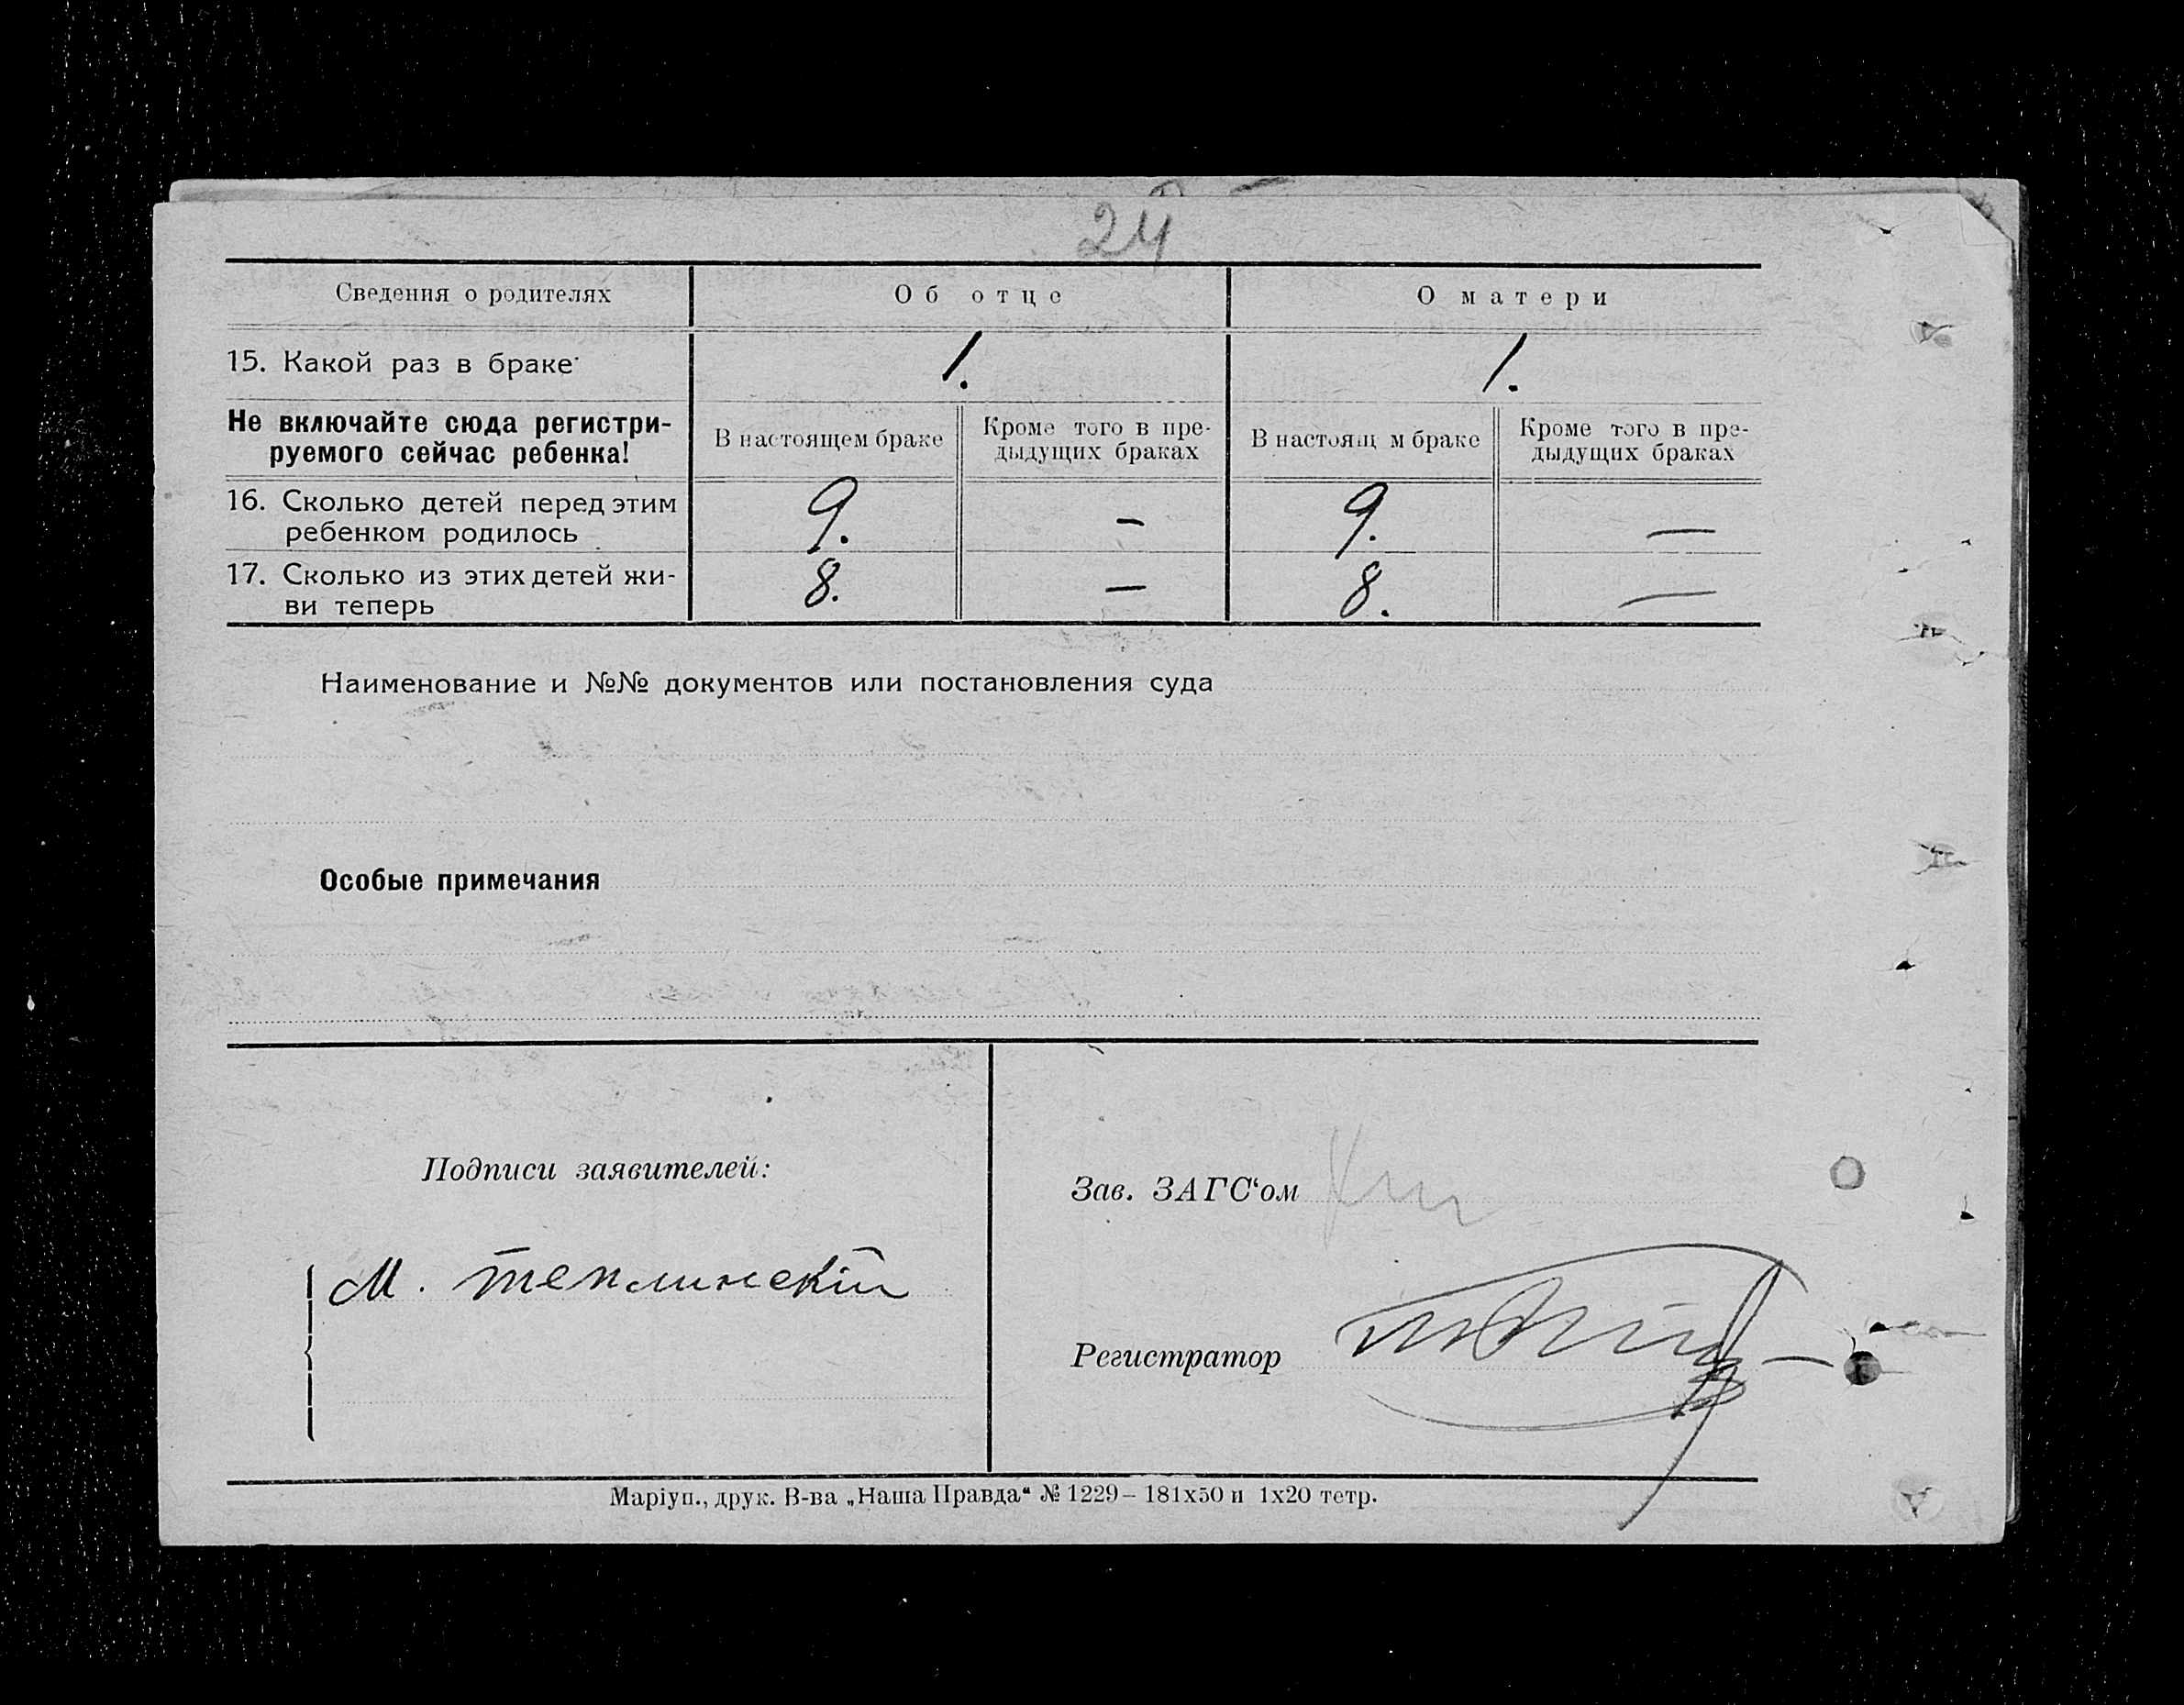 24
Сведения о родителях Об отце О матери
15. Какой раз в браке 1. 1.
Не включайте сюда регистри-
руемого сейчас ребенка!
В настоящем браке Кроме того в пре-
дыдущих браках
В настоящ м браке Кроме того в пре-
дыдущих браках
16. Сколько детей перед этим
ребенком родилось 9. – 9. —
17. Сколько из этих детей жи-
ви теперь 8. — 8. —
Наименование и №№ документов или постановления суда
Особые примечания
Подписи заявителей:
М. Теплинскій
Зав. ЗАГС‘ом
Регистратор
Маріуп., друк. В-ва „Наша Правда“ № 1229 – 181х50 и 1х20 тетр.